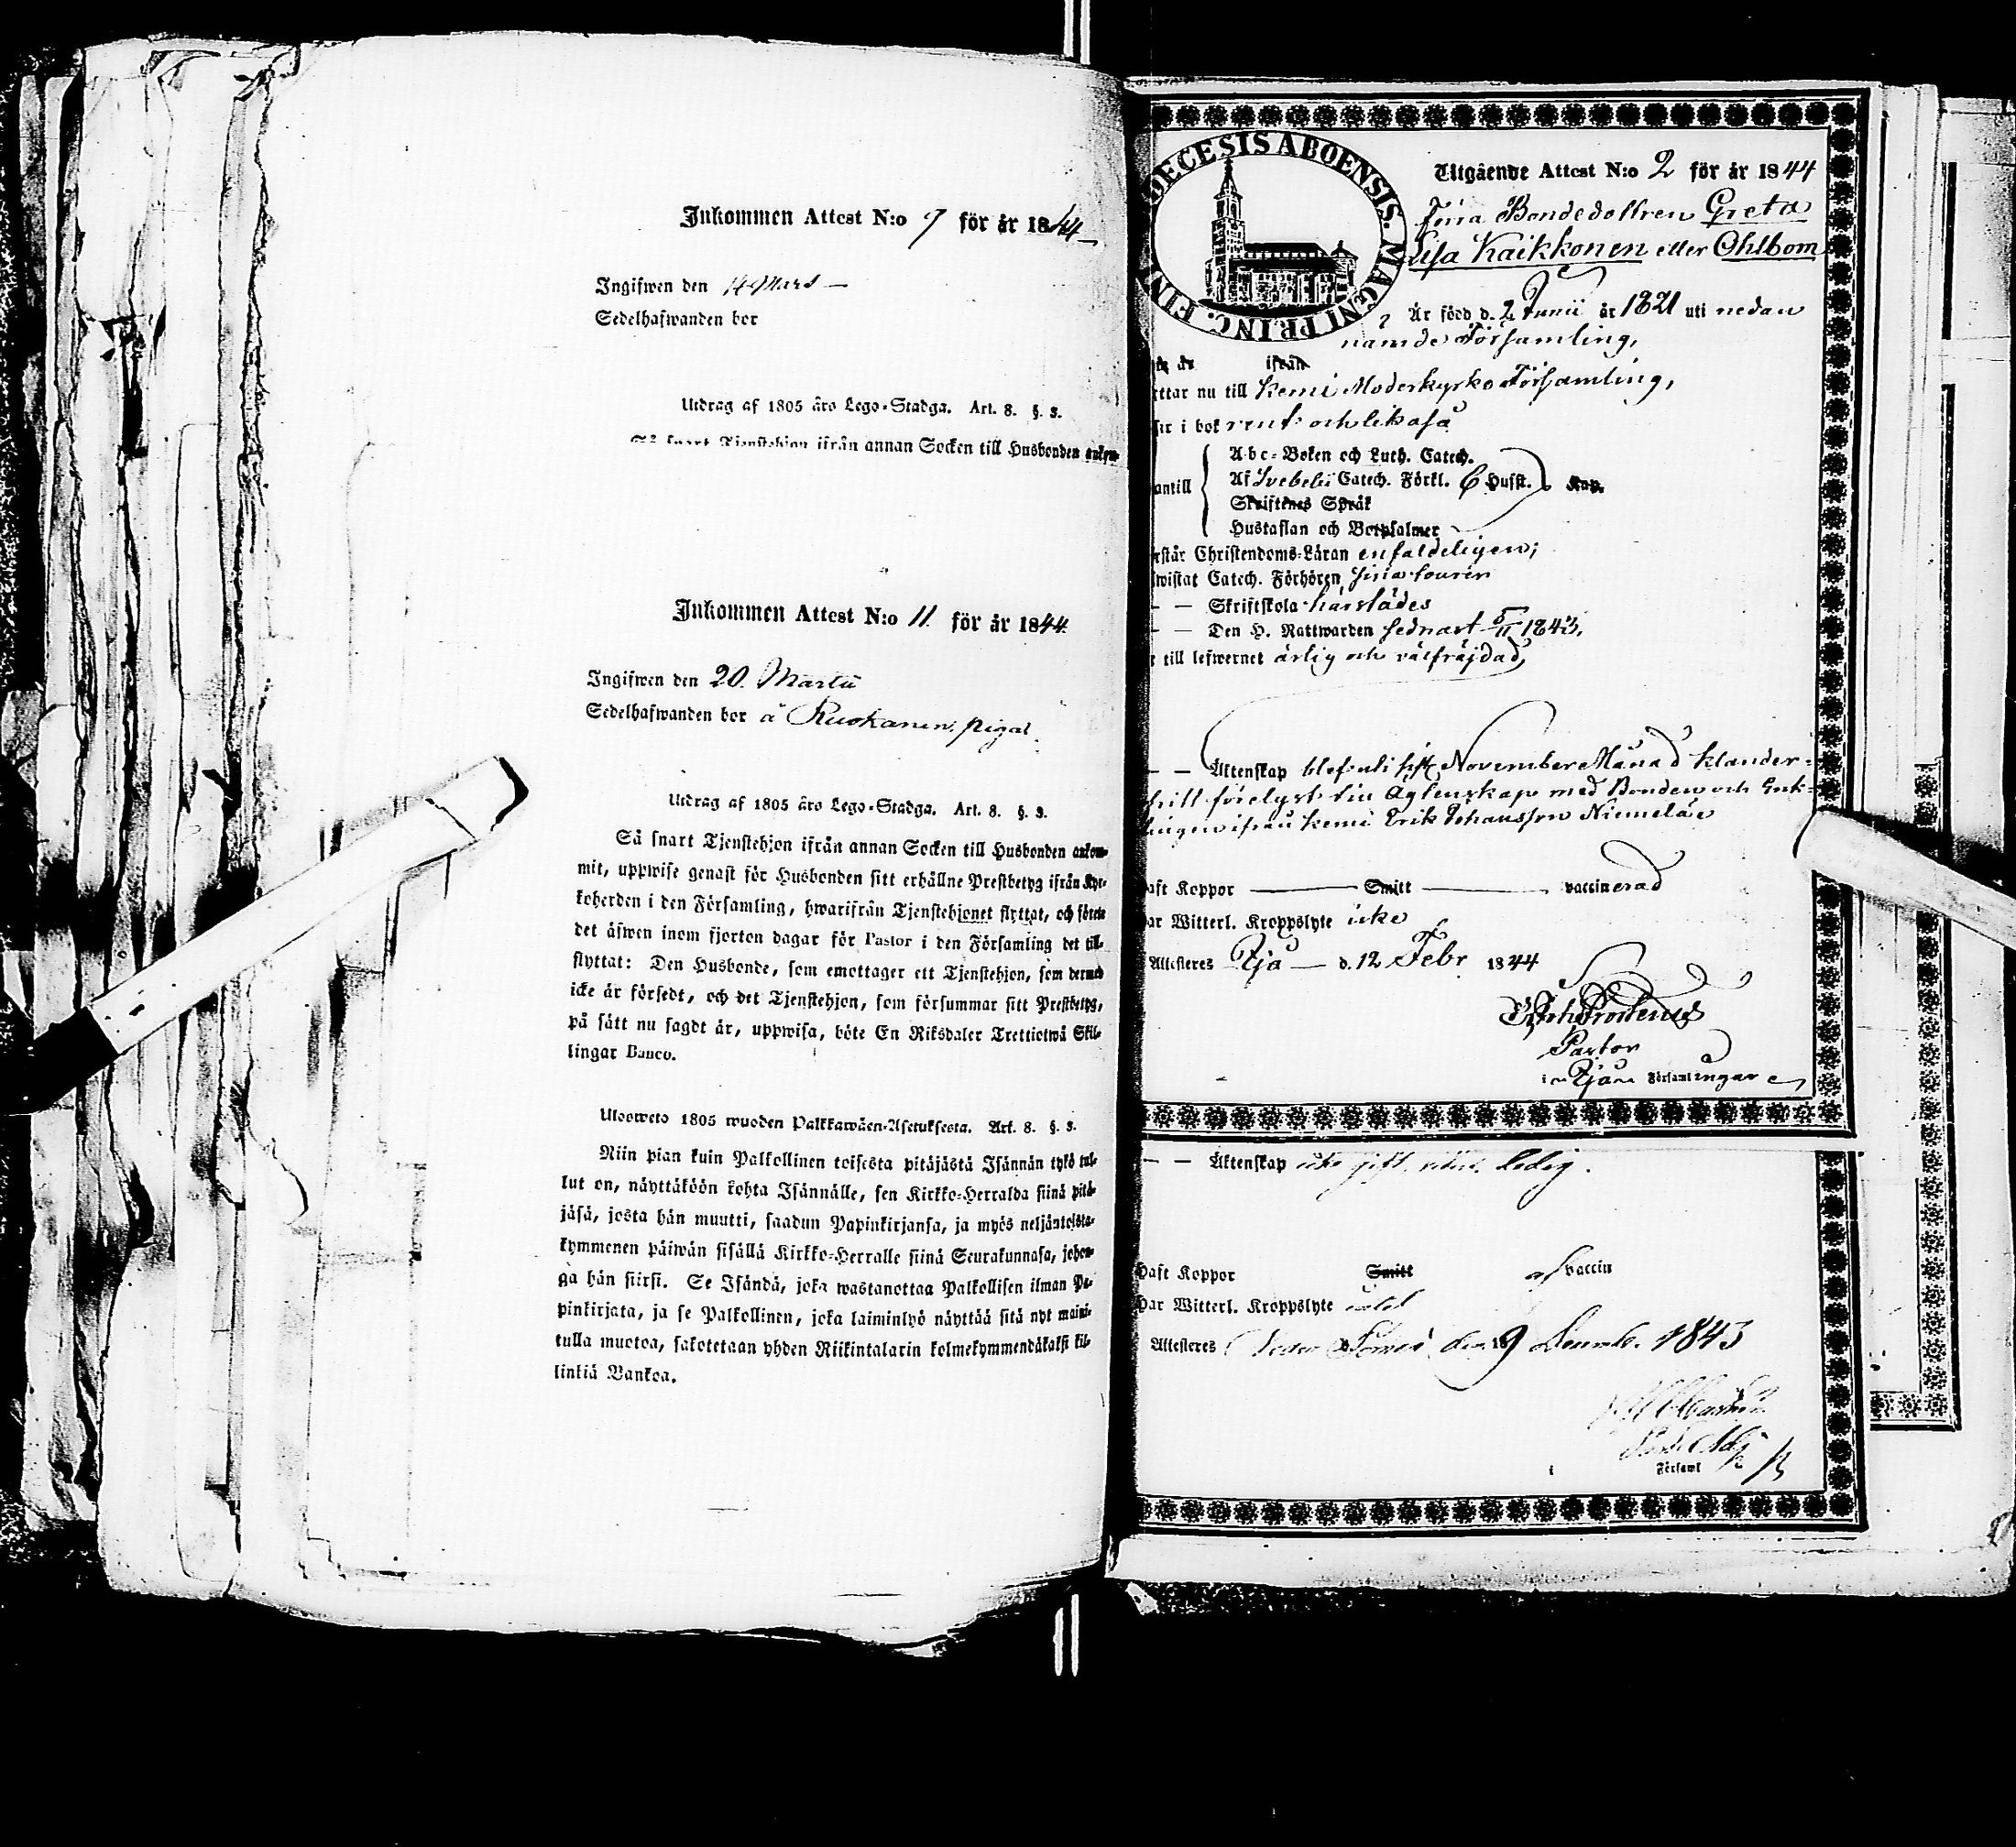 Inkommen Attest N:o 9 för år 1844
Ingifwen den 14 Mars —
Sedelhafwanden bor
Utdrag af 1805 års Lego-Stadga. Art. 8. §. 3.
Så snart Tjenstehjon ifrån annan Socken till Husbonden ankom-
Inkommen Attest N:o 11 för år 1844.
Ingifwen den 20. Martii
Sedelhafwanden bor å Ruokanen, pigal
Utdrag af 1805 års Lego-Stadga. Art. 8. §. 3.
Så snart Tjenstehjon ifrån annan Socken till Husbonden ankom-
mit, uppwise genast för Husbonden sitt erhållne Prestbetyg ifrån Kyr-
koherden i den Församling, hwarifrån Tjenstehjonet flyttat, och förete
det äfwen inom fjorton dagar för Pastor i den Församling det till-
flyttat: Den Husbonde, som emottager ett Tjenstehjon, som dermed
icke är försedt, och det Tjenstehjon, som försummar sitt Prestbetyg,
på sätt nu sagdt är, uppwisa, böte En Riksdaler Trettiotwå Skil-
lingar Banco.
Uloosweto 1805 wuoden Palkkawäen-Asetuksesta. Art. 8. §. 3.
Niin pian kuin Palkollinen toisesta pitäjästä Isännän tykö tul-
lut on, näyttäköön kohta Isännälle, sen Kirkko-Herralda siinä pitä-
jäsä, josta hän muutti, saadun Papinkirjansa, ja myös neljäntoista-
kymmenen päiwän sisällä Kirkko-Herralle siinä Seurakunnasa, johon-
ga hän siirsi. Se Isändä, joka wastanottaa Palkollisen ilman Pa-
pinkirjata, ja se Palkollinen, joka laiminlyö näyttää sitä nyt maini-
tulla muotoa, sakotetaan yhden Riikintalarin kolmekymmendäkaksi kil-
linkiä Bankoa.
DECESIS ABOENSIS. MAGNI PRINC. FIN
Utgående Attest N:o 2 för år 1844
Förra Bondedottren Greta
Lisa Kaikkonen eller Ohlbom
Är född d. 2 Junii år 1821 uti nedan
nämnde Församling,
ifrån
ttar nu till Kemi Moderkyrko Församling,
i bok rent och likaså
Abc-Boken och Luth. Catech.
antill Af Svebelii Catech. Förkl. C Husst. Kap.
Skriftenes Språk
Hustaflan och Botpsalmer
rstår Christendoms-Läran enfaldeligen;
wistat Catech. Förhören sina tourer
— — Skriftskola härstädes
— — Den H. Nattwarden sednast 5/11 1843,
r till lefwernet ärlig och välfräjdad,
— — Äktenskap blef uti sist. November Månad klander-
fritt förelyst till Äqtenskap med Bonden och Enk-
lingen ifrån Kemi Erik Johansson Niemelä
aft Koppor — Smitt — vaccinerad
ar Witterl. Kroppslyte icke
Attesteres Ijå — d. 12 Febr 1844
Pastor
i Ijå Församlingar
— — Äktenskap icke gift, utan ledig.
Haft Koppor Smitt af vaccin
Har Witterl. Kroppslyte
Attesteres Neder Torneå den 9 Decemb. 1843
i Församl